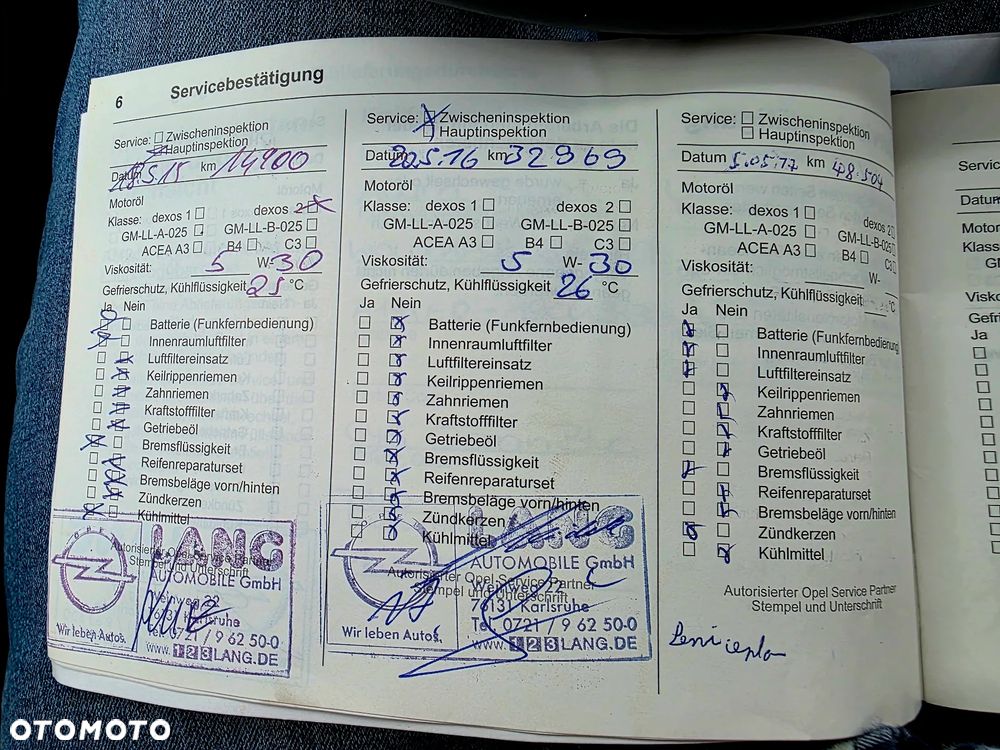 6
Servicebestätigung
Service: ☐ Zwischeninspektion
☒ Hauptinspektion
Datum 18.5.15 km 14900
Motoröl
Klasse: dexos 1 ☐ dexos 2 ☒
GM-LL-A-025 ☐ GM-LL-B-025 ☐
ACEA A3 ☐ B4 ☐ C3 ☐
Viskosität: 5 W-30
Gefrierschutz, Kühlflüssigkeit 25 °C
Ja Nein
Batterie (Funkfernbedienung)
Innenraumluftfilter
Luftfiltereinsatz
Keilrippenriemen
Zahnriemen
Kraftstofffilter
Getriebeöl
Bremsflüssigkeit
Reifenreparaturset
Bremsbeläge vorn/hinten
Zündkerzen
Kühlmittel
Autorisierter Opel Service Partner
Stempel und Unterschrift
OPEL
Wir leben Autos.
LANG
AUTOMOBILE GmbH
76131 Karlsruhe
Tel. 0721 / 9 62 50-0
www.123LANG.DE
Service: ☒ Zwischeninspektion
☐ Hauptinspektion
Datum 22.5.16 km 32969
Motoröl
Klasse: dexos 1 ☐ dexos 2 ☐
GM-LL-A-025 ☐ GM-LL-B-025 ☐
ACEA A3 ☐ B4 ☐ C3 ☐
Viskosität: 5 W-30
Gefrierschutz, Kühlflüssigkeit 26 °C
Ja Nein
Batterie (Funkfernbedienung)
Innenraumluftfilter
Luftfiltereinsatz
Keilrippenriemen
Zahnriemen
Kraftstofffilter
Getriebeöl
Bremsflüssigkeit
Reifenreparaturset
Bremsbeläge vorn/hinten
Zündkerzen
Kühlmittel
Autorisierter Opel Service Partner
Stempel und Unterschrift
Wir leben Autos.
LANG
AUTOMOBILE GmbH
76131 Karlsruhe
Tel. 0721 / 9 62 50-0
www.123LANG.DE
Service: ☐ Zwischeninspektion
☐ Hauptinspektion
Datum 5.05.17 km 48.504
Motoröl
Klasse: dexos 1 ☐ dexos 2 ☐
GM-LL-A-025 ☐ GM-LL-B-025 ☐
ACEA A3 ☐ B4 ☐ C3 ☐
Viskosität: W-
Gefrierschutz, Kühlflüssigkeit °C
Ja Nein
Batterie (Funkfernbedienung)
Innenraumluftfilter
Luftfiltereinsatz
Keilrippenriemen
Zahnriemen
Kraftstofffilter
Getriebeöl
Bremsflüssigkeit
Reifenreparaturset
Bremsbeläge vorn/hinten
Zündkerzen
Kühlmittel
Autorisierter Opel Service Partner
Stempel und Unterschrift
Ja
OTOMOTO